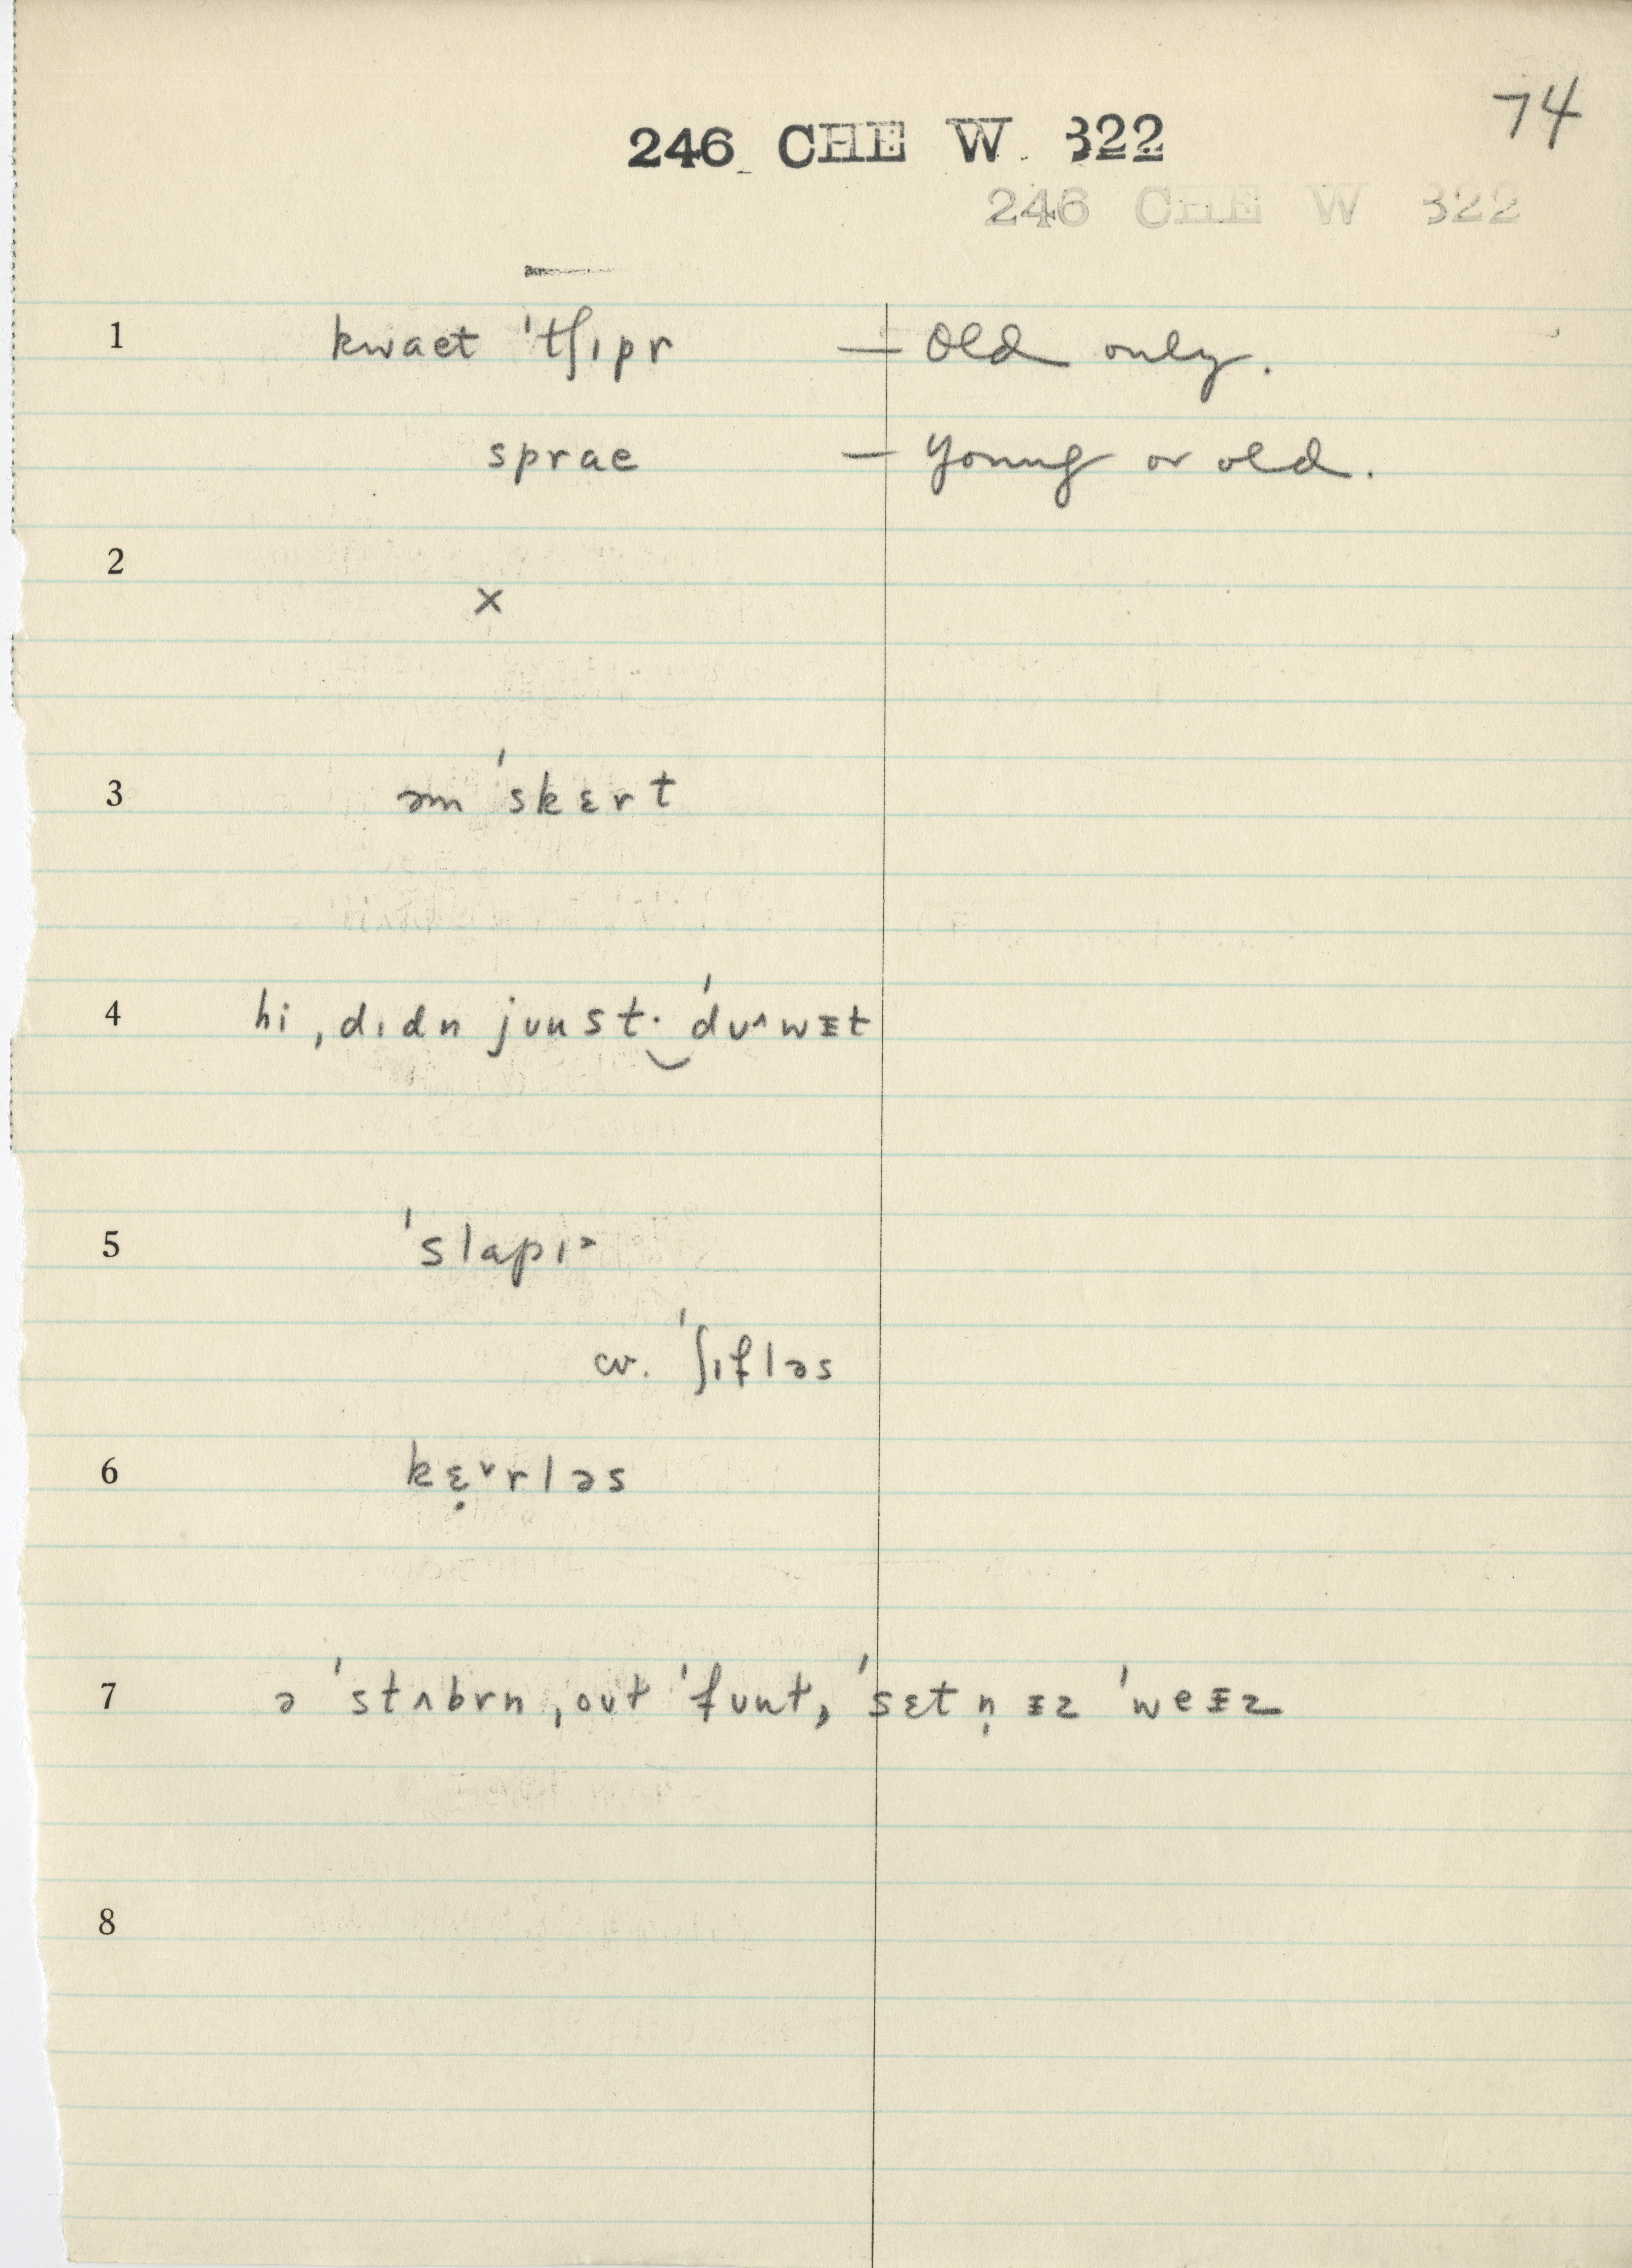 74
246 CHE W 322
246 CHE W 322
1 kwaet ˈtʃɪpr — Old only.
sprae — Young or old.
2
×
3 əmˈskɛrt
4 hi ˌdɪdn juust· ˈdu˄wᵻt
5 ˈslapɪ˃
cv. ˈʃɪfləs
6 kɛ̣˅rləs
7 ə ˈstʌbrn ˌout ˈfunt, ˈsɛtn̩ ᵻz ˈweᵻz
8